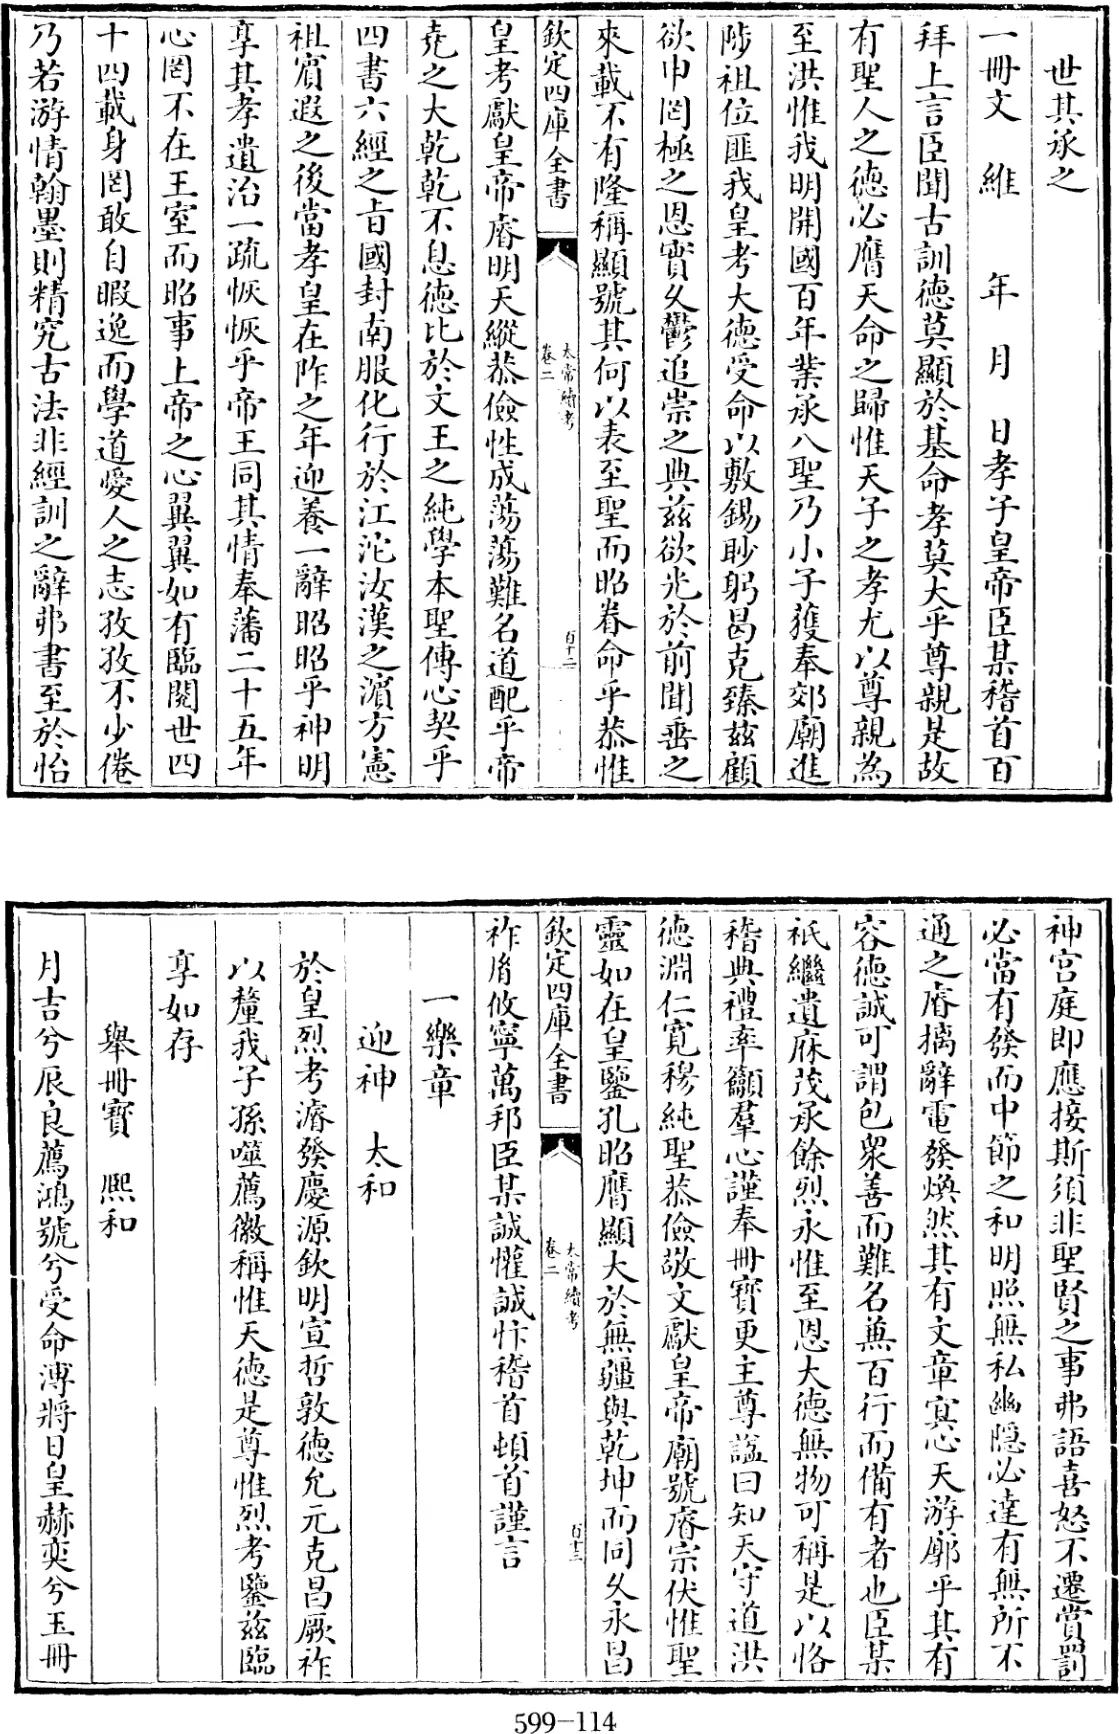 世其承之
一冊文　維　　年　月　日孝子皇帝臣某稽首百
拜上言臣聞古訓德莫顯於基命孝莫大乎尊親是故
有聖人之德必膺天命之歸惟天子之孝尤以尊親為
至洪惟我明開國百年業承八聖乃小子獲奉郊廟進
陟祖位匪我皇考大德受命以敷錫眇躬曷克臻兹顧
欲申罔極之恩實久鬱追崇之典兹欲光於前聞垂之
來載不有隆稱顯號其何以表至聖而昭眷命乎恭惟
欽定四庫全書
太常續考
卷二
百十二
皇考獻皇帝睿明天縱恭儉性成蕩蕩難名道配乎帝
堯之大乾乾不息德比於文王之純學本聖傳心契乎
四書六經之旨國封南服化行於江沱汝漢之濱方憲
祖賓遐之後當孝皇在阼之年迎養一辭昭昭乎神明
享其孝遺治一疏恢恢乎帝王同其情奉藩二十五年
心罔不在王室而昭事上帝之心翼翼如有臨閱世四
十四載身罔敢自暇逸而學道愛人之志孜孜不少倦
乃若游情翰墨則精究古法非經訓之辭弗書至於怡
神宮庭即應接斯須非聖賢之事弗語喜怒不遷賞罰
必當有發而中節之和明照無私幽隱必達有無所不
通之睿摛辭電發煥然其有文章寘心天游廓乎其有
容德誠可謂包衆善而難名兼百行而備有者也臣某
祇繼遺庥茂承餘烈永惟至恩大德無物可稱是以恪
稽典禮率籲羣心謹奉冊寶更主尊謚曰知天守道洪
德淵仁寬穆純聖恭儉敬文獻皇帝廟號睿宗伏惟聖
靈如在皇鑒孔昭膺顯大於無疆與乾坤而同久永昌
欽定四庫全書
太常續考
卷二
百十三
祚胤攸寧萬邦臣某誠懽誠忭稽首頓首謹言
一樂章
迎神　太和
於皇烈考濬發慶源欽明宣哲敦德允元克昌厥祚
以釐我子孫噬薦徽稱惟天德是尊惟烈考鑒兹臨
享如存
舉冊寶　熙和
月吉兮辰良薦鴻號兮受命溥將日皇赫奕兮玉冊
599-114